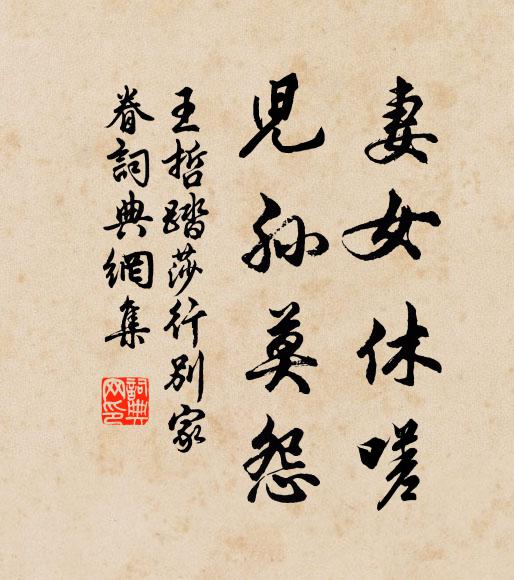 妻女休嗟
兒孫莫怨
王哲踏莎行別家
眷詞典網集
詞典
網印